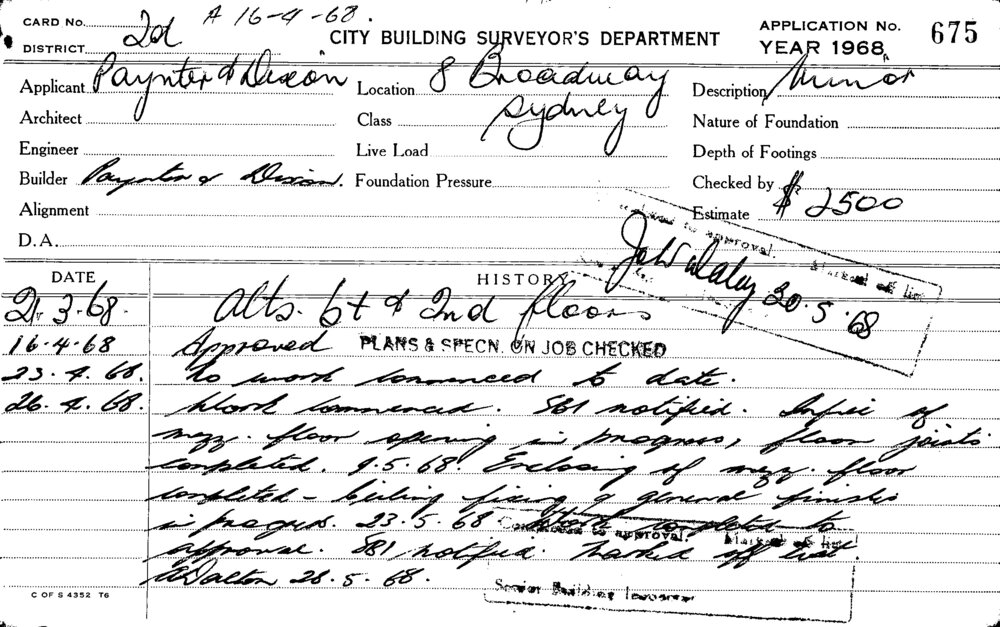 CARD No. A 16-4-68.
DISTRICT 2d
CITY BUILDING SURVEYOR'S DEPARTMENT
APPLICATION No. 675
YEAR 1968
Applicant Paynter & Dixon
Location 8 Broadway
Sydney
Description Minor
Architect
Class
Nature of Foundation
Engineer
Live Load
Depth of Footings
Builder Paynter & Dixon.
Foundation Pressure
Checked by
Alignment
Estimate $2500
D.A.
to approval. Marked off list
30.5.68
DATE HISTORY
21.3.68. Alts. bt & 2nd floors
16.4.68 Approved PLANS & SPECN. ON JOB CHECKED
23.4.68. No work commenced to date.
26.4.68. Work commenced. SBI notified. Infil of
mezz. floor opening in progress, floor joists
completed. 9.5.68. Enclosing of mezz. floor
completed - ceiling fixing & general finishes
in progress. 23.5.68 Work completed to
approval. SBI notified. Marked off list.
Dalton 28.5.68.
Completed to approval. Marked off list
Senior Building Inspector
C OF S 4352 T6